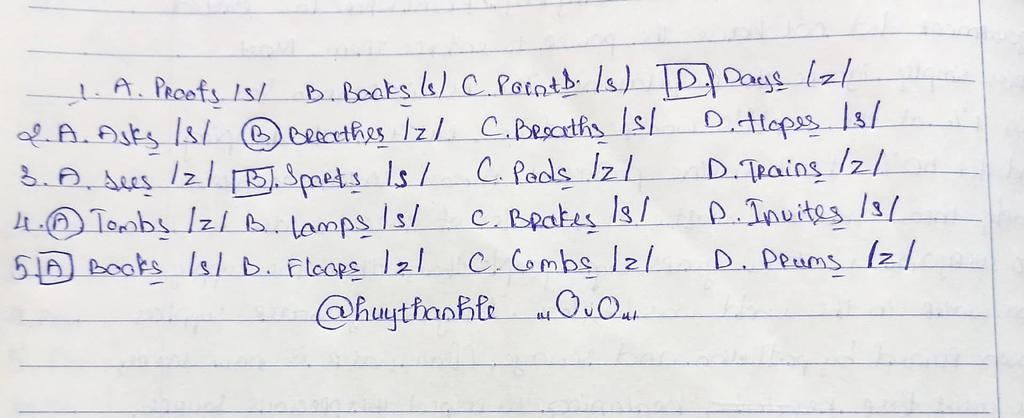 1. A. Proofs /s/ B. Books /s/ C. Points /s/ D. Days /z/
2. A. Asks /s/ B Breathes /z/ C. Breaths /s/ D. Hopes /s/
3. A. Sees /z/ B. Sports /s/ C. Pods /z/ D. Trains /z/
4. A Tombs /z/ B. Lamps /s/ C. Brakes /s/ D. Invites /s/
5 A Books /s/ B. Floors /z/ C. Combs /z/ D. Drums /z/
@huythanhle OuO